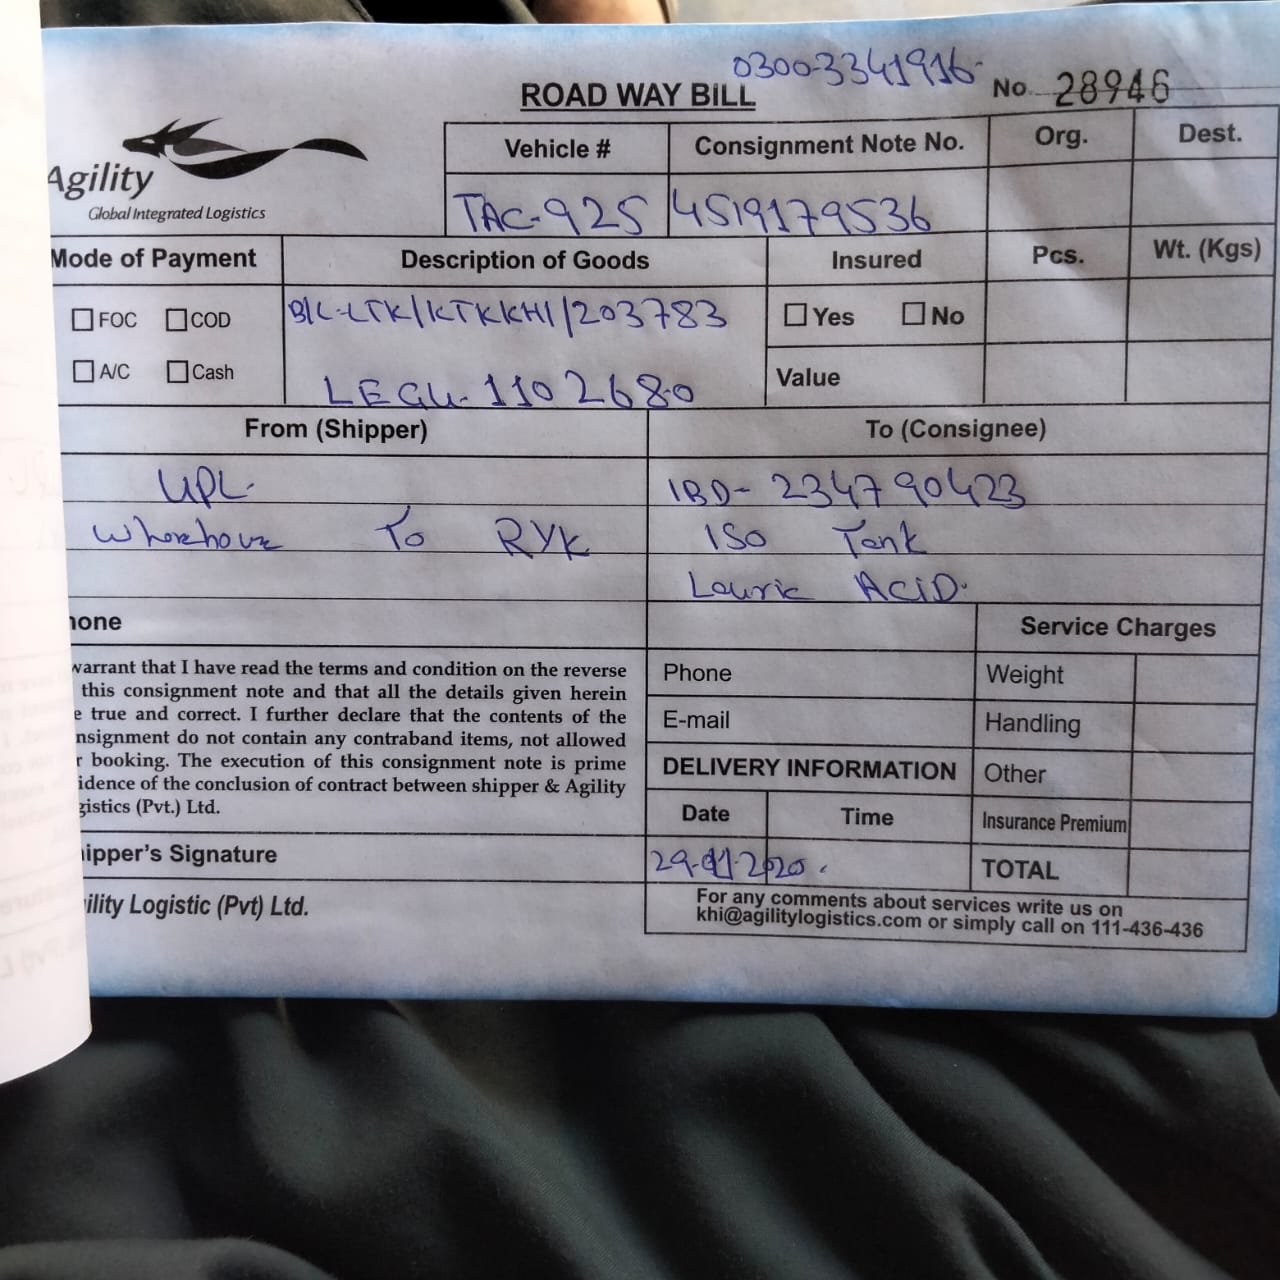 0300-3341916-
ROAD WAY BILL
No. 28946
Agility
Global Integrated Logistics
Vehicle # Consignment Note No. Org. Dest.
TAC-925 4519179536
Mode of Payment Description of Goods Insured Pcs. Wt. (Kgs)
FOC COD B/L-LTK/KTKKHI/203783 Yes No
A/C Cash LEGU-110268-0 Value
From (Shipper) To (Consignee)
UPL- IBD- 234790423
Wherehouse To RYK ISO Tank
Lauric ACiD.
hone Service Charges
warrant that I have read the terms and condition on the reverse
this consignment note and that all the details given herein
e true and correct. I further declare that the contents of the
nsignment do not contain any contraband items, not allowed
r booking. The execution of this consignment note is prime
idence of the conclusion of contract between shipper & Agility
gistics (Pvt.) Ltd.
Phone Weight
E-mail Handling
DELIVERY INFORMATION Other
Date Time Insurance Premium
ipper's Signature 29-11-2020. TOTAL
ility Logistic (Pvt) Ltd.
For any comments about services write us on
khi@agilitylogistics.com or simply call on 111-436-436